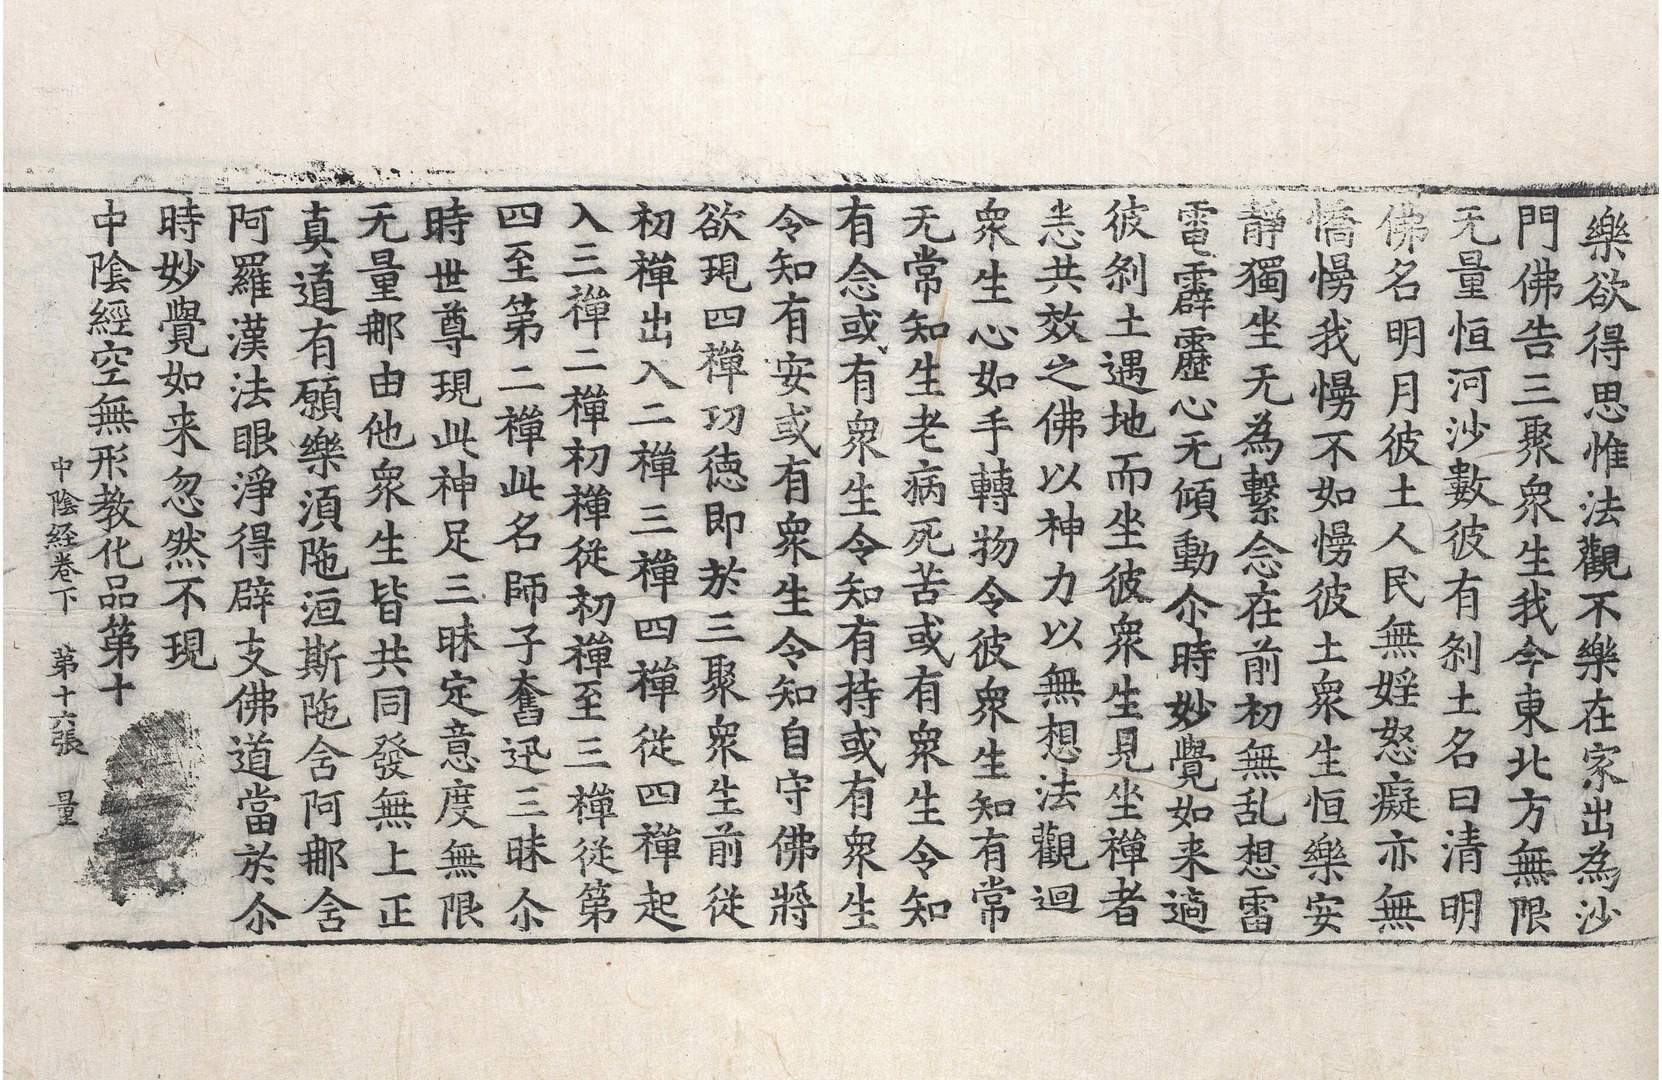 樂欲得思惟法觀不樂在家出為沙
門佛告三聚衆生我今東北方無限
无量恒河沙數彼有剎土名曰清明
佛名明月彼土人民無婬怒癡亦無
憍慢我慢不如慢彼土衆生恒樂安
靜獨坐无為繫念在前初無乱想雷
電霹靂心无傾動尒時妙覺如来適
彼剎土遇地而坐彼衆生見坐禪者
恙共效之佛以神力以無想法觀迴
衆生心如手轉物令彼衆生知有常
无常知生老病死苦或有衆生令知
有念或有衆生令知有持或有衆生
令知有安或有衆生令知自守佛將
欲現四禪功徳即於三聚衆生前從
初禪出入二禪三禪四禪從四禪起
入三禪二禪初禪從初禪至三禪從第
四至第二禪此名師子奮迅三昧尒
時世尊現此神足三昧定意度無限
无量那由他衆生皆共同發無上正
真道有願樂湏陁洹斯陁含阿那含
阿羅漢法眼淨得辟支佛道當於尒
時妙覺如来忽然不現
中陰經空無形教化品第十
中陰経卷下 第十六張 量